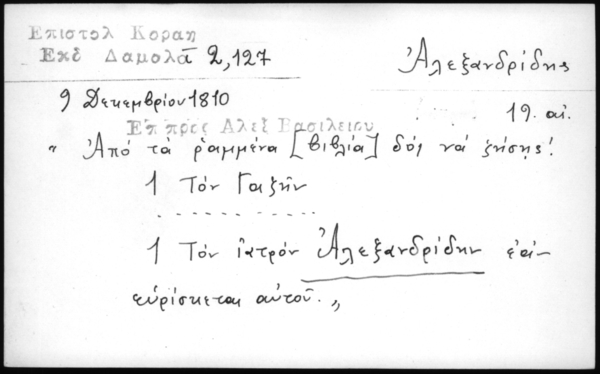 Επιστολ Κοραη
Εκδ Δαμαλᾶ 2,127
Ἀλεξανδρίδης
9 Δεκεμβρίου 1810
19. αἰ.
Επ προς Αλεξ Βασιλειου
" Ἀπό τά ῥαμμένα [βιβλία] δός νά ζήσης!
1 Τόν Γαζῆν
1 Τόν ἰατρόν Ἀλεξανδρίδην ἐάν
εὑρίσκεται αὐτοῦ. "